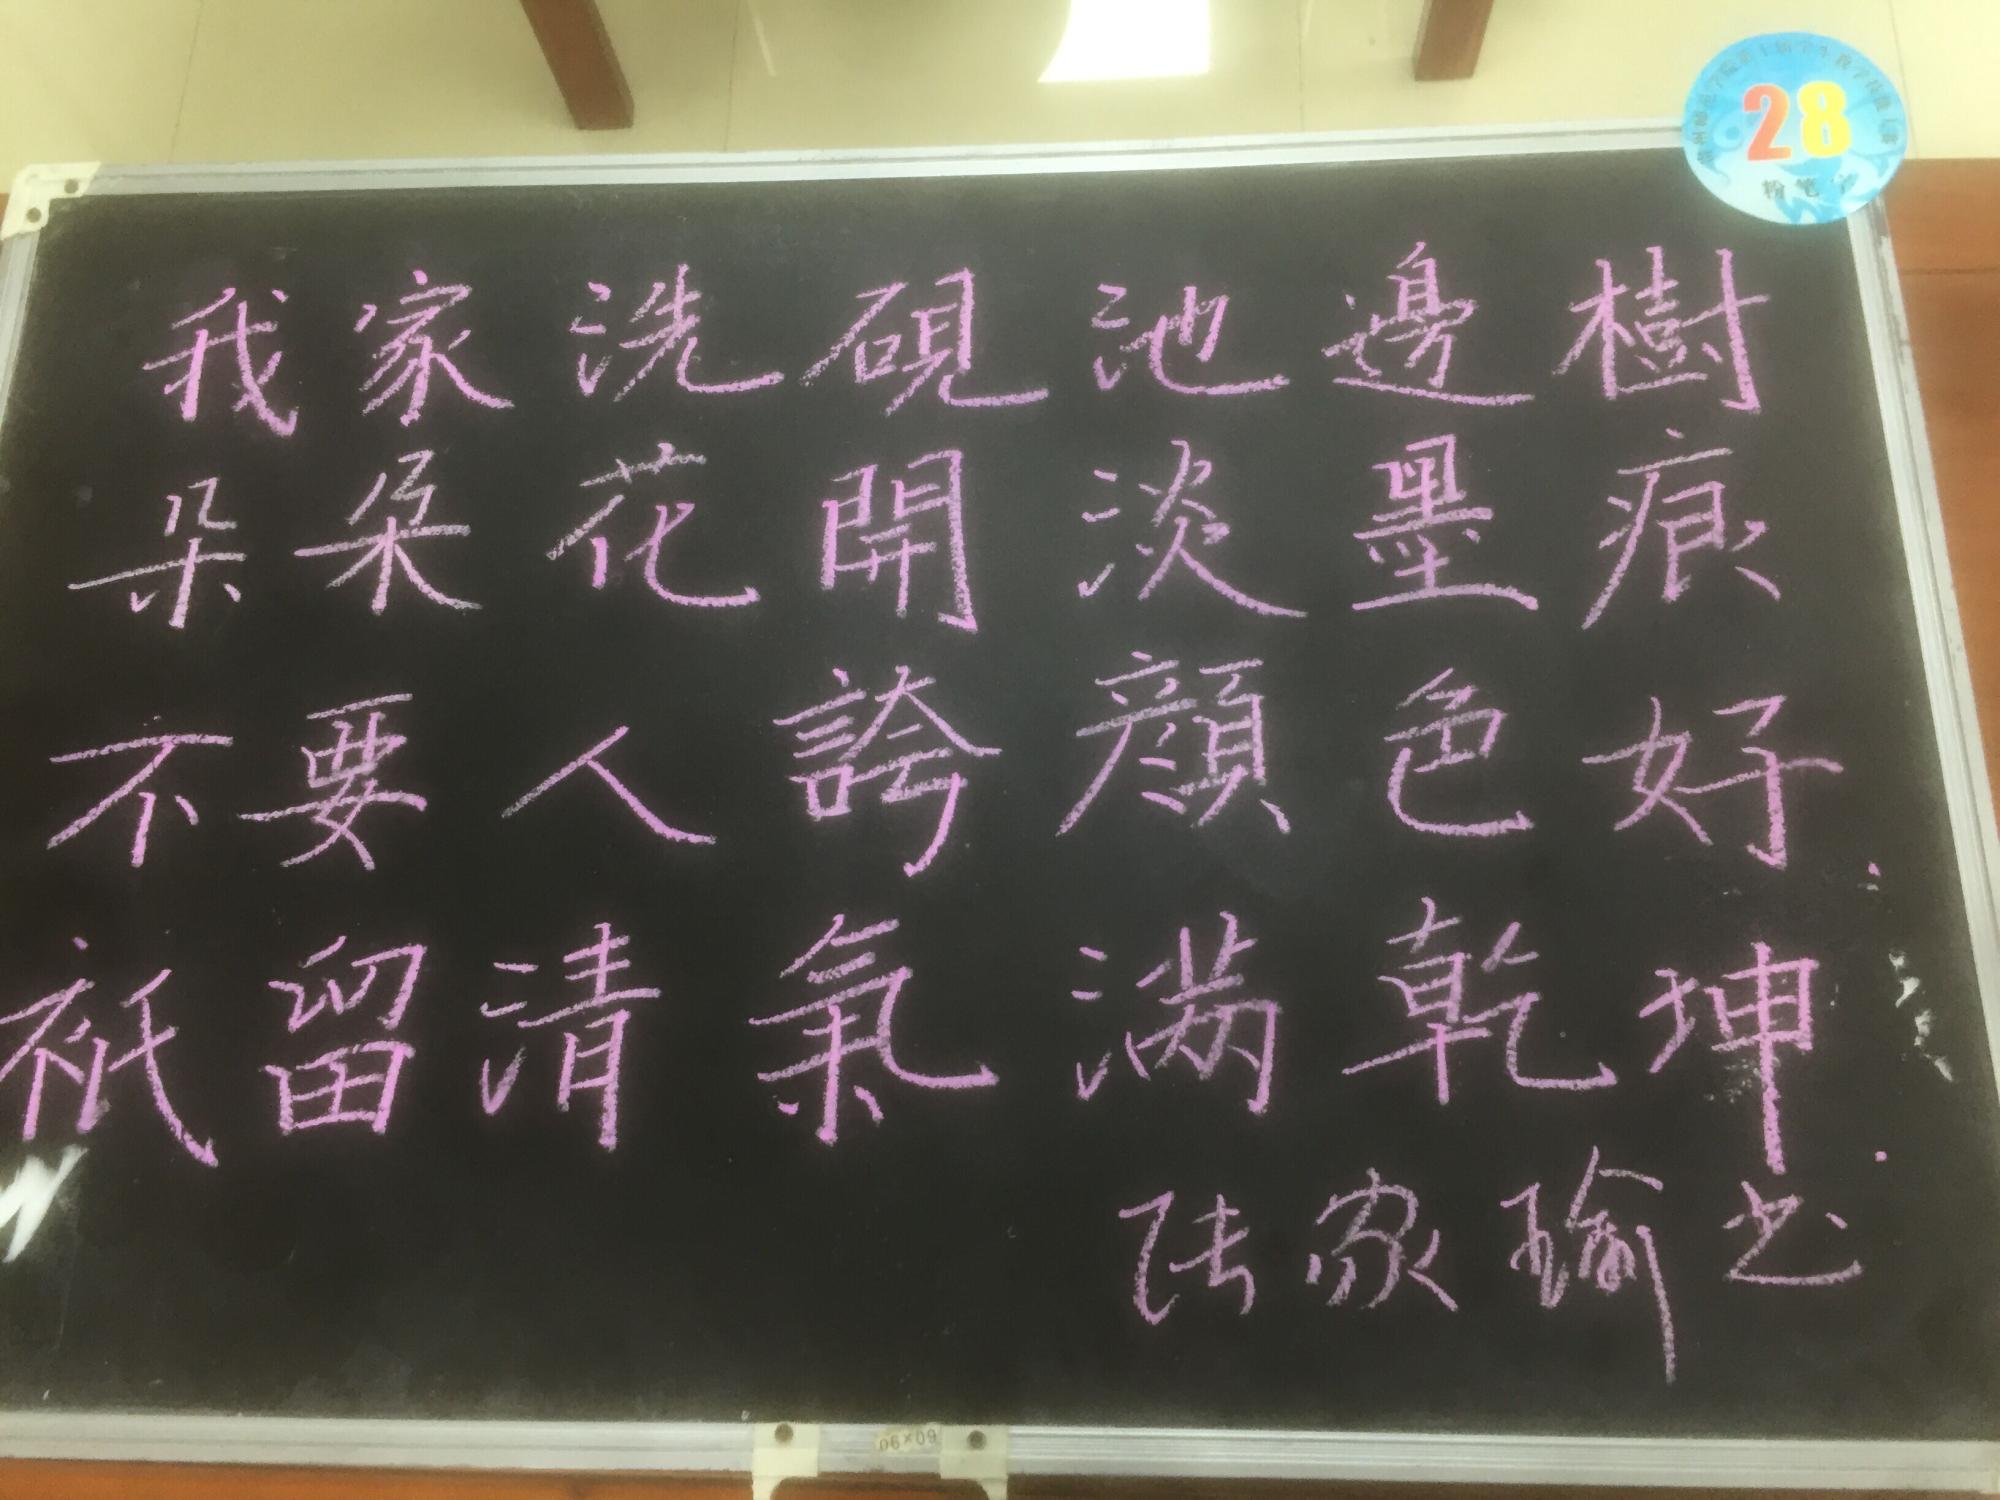 28
粉笔字
我家洗硯池邊樹
朵朵花開淡墨痕
不要人誇顏色好
祇留清氣滿乾坤
陆家瑜书
60×90